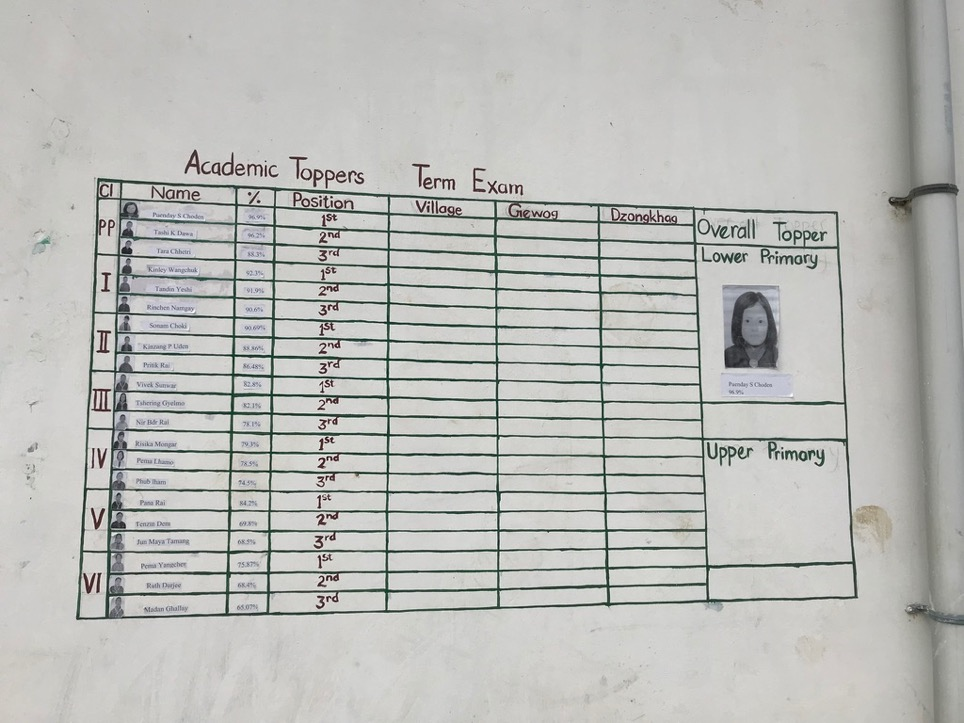 Academic Toppers Term Exam
Cl Name % Position Village Gewog Dzongkhag
Overall Topper
Lower Primary
PP
Paenday S Choden 96.9% 1st
Tashi K Dawa 96.2% 2nd
Tara Chhetri 88.3% 3rd
I
Kinley Wangchuk 92.3% 1st
Tandin Yeshi 91.9% 2nd
Rinchen Namgay 90.6% 3rd
II
Sonam Choki 90.69% 1st
Kinzang P Uden 88.86% 2nd
Pritik Rai 86.48% 3rd
III
Vivek Sunwar 82.8% 1st
Tshering Gyelmo 82.1% 2nd
Nir Bdr Rai 78.1% 3rd
IV
Risika Mongar 79.3% 1st
Pema Lhamo 78.5% 2nd
Phub 74.5% 3rd
V
Pana Rai 84.2% 1st
Tenzin Dem 69.8% 2nd
Jun Maya Tamang 68.5% 3rd
VI
Pema Yangchen 75.87% 1st
Ratb Dorjee 68.4% 2nd
Madan Ghalley 65.07% 3rd
Paenday S Choden
96.9%
Upper Primary